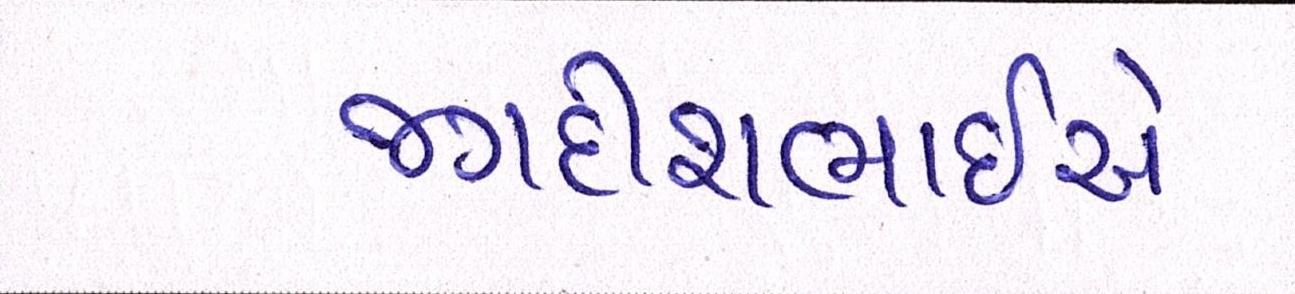 જગદીશભાઈએ